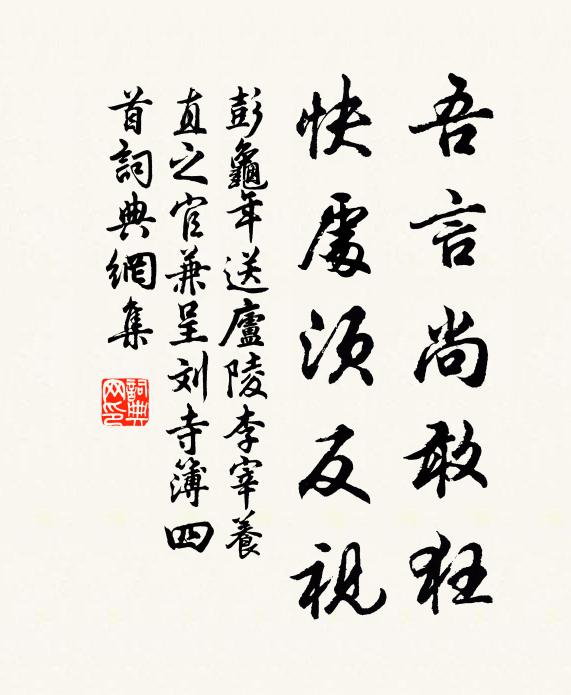 吾言尚敢狂
快處須反視
彭龜年送廬陵李宰養
直之官兼呈刘寺簿四
首詞典網集
詞典网印